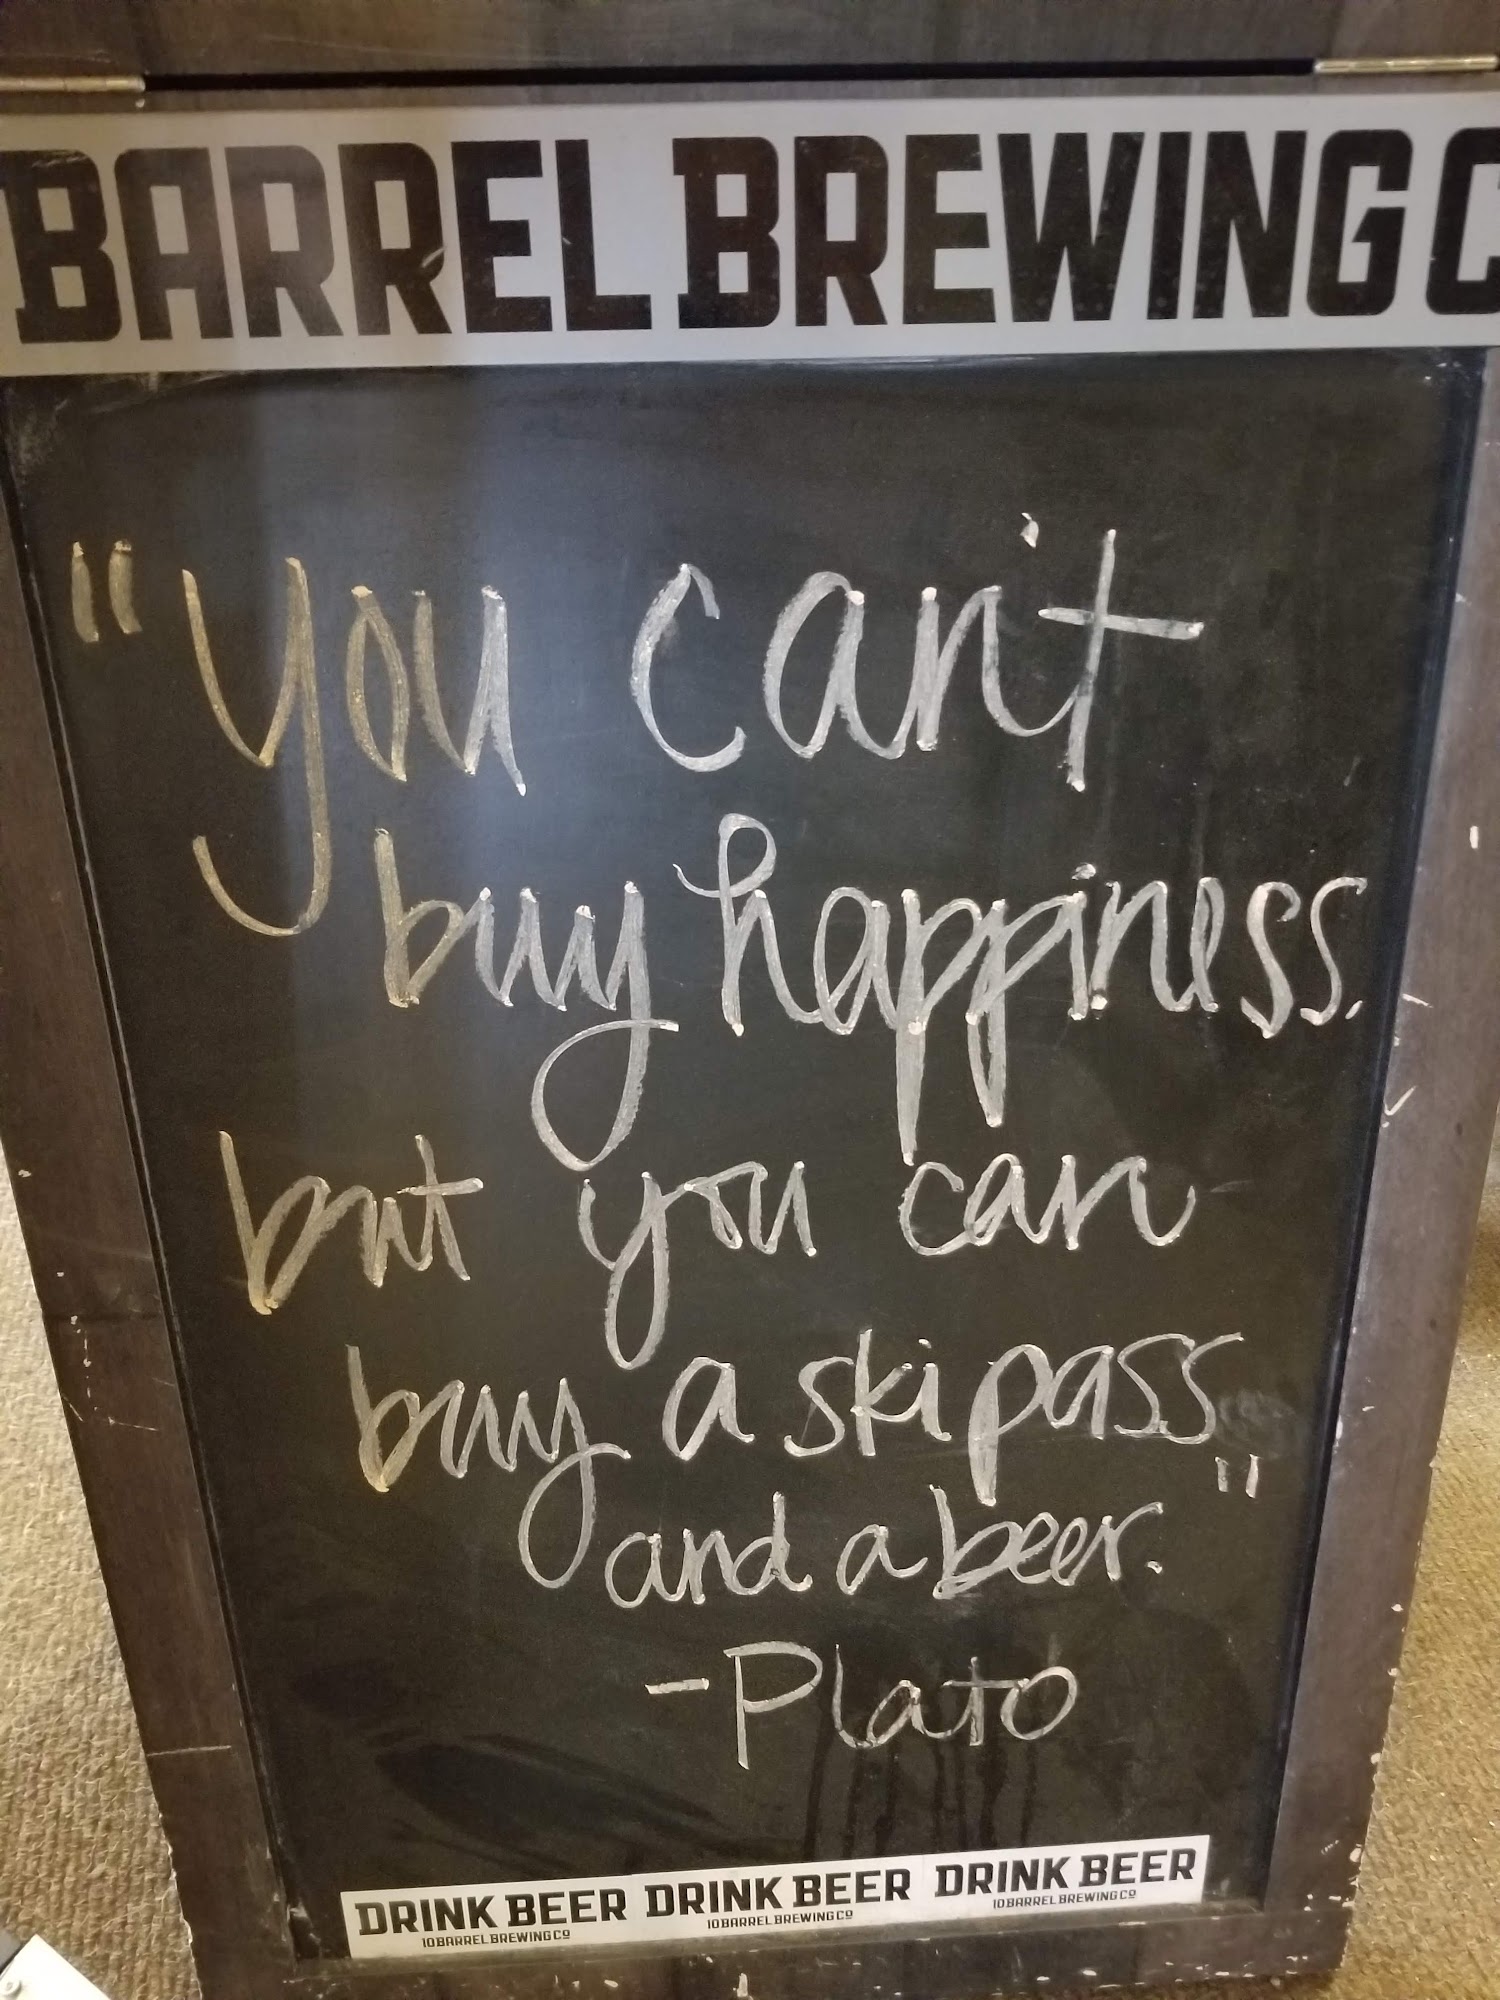 BARREL BREWING C
"you can't
buy happiness.
but you can
buy a ski pass
and a beer."
-Plato
DRINK BEER DRINK BEER DRINK BEER
10 BARREL BREWING CO 10 BARREL BREWING CO 10 BARREL BREWING CO